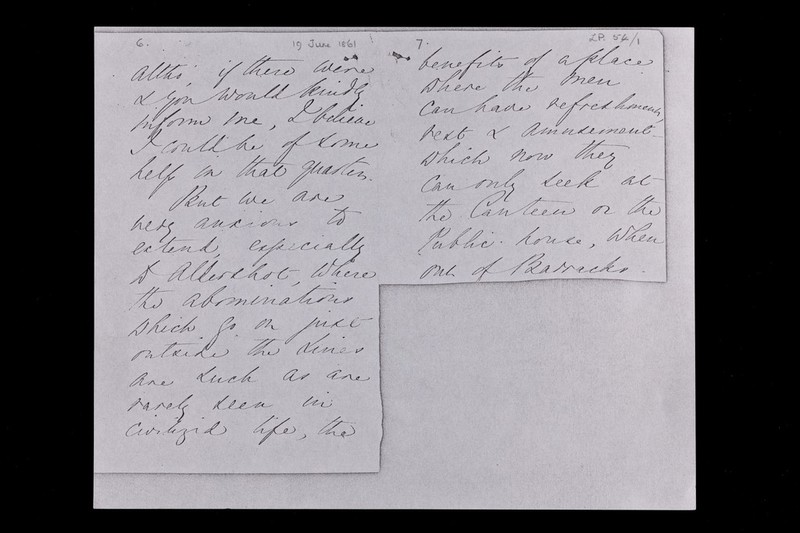 6.
19 June 1861
altho', if there were
& you would kindly
inform me, I believe
I could be of some
help in that quarter.
But we are
very anxious to
extend, especially
to Aldershot, where
the abominations
which go on just
outside the Lines
are such as are
rarely seen in
civilized life, the
7.
LP. 54/1
benefits of a place
where the men
can have refreshments,
rest & amusement
which now they
can only seek at
the Canteen or the
Public-house, when
out of Barracks.